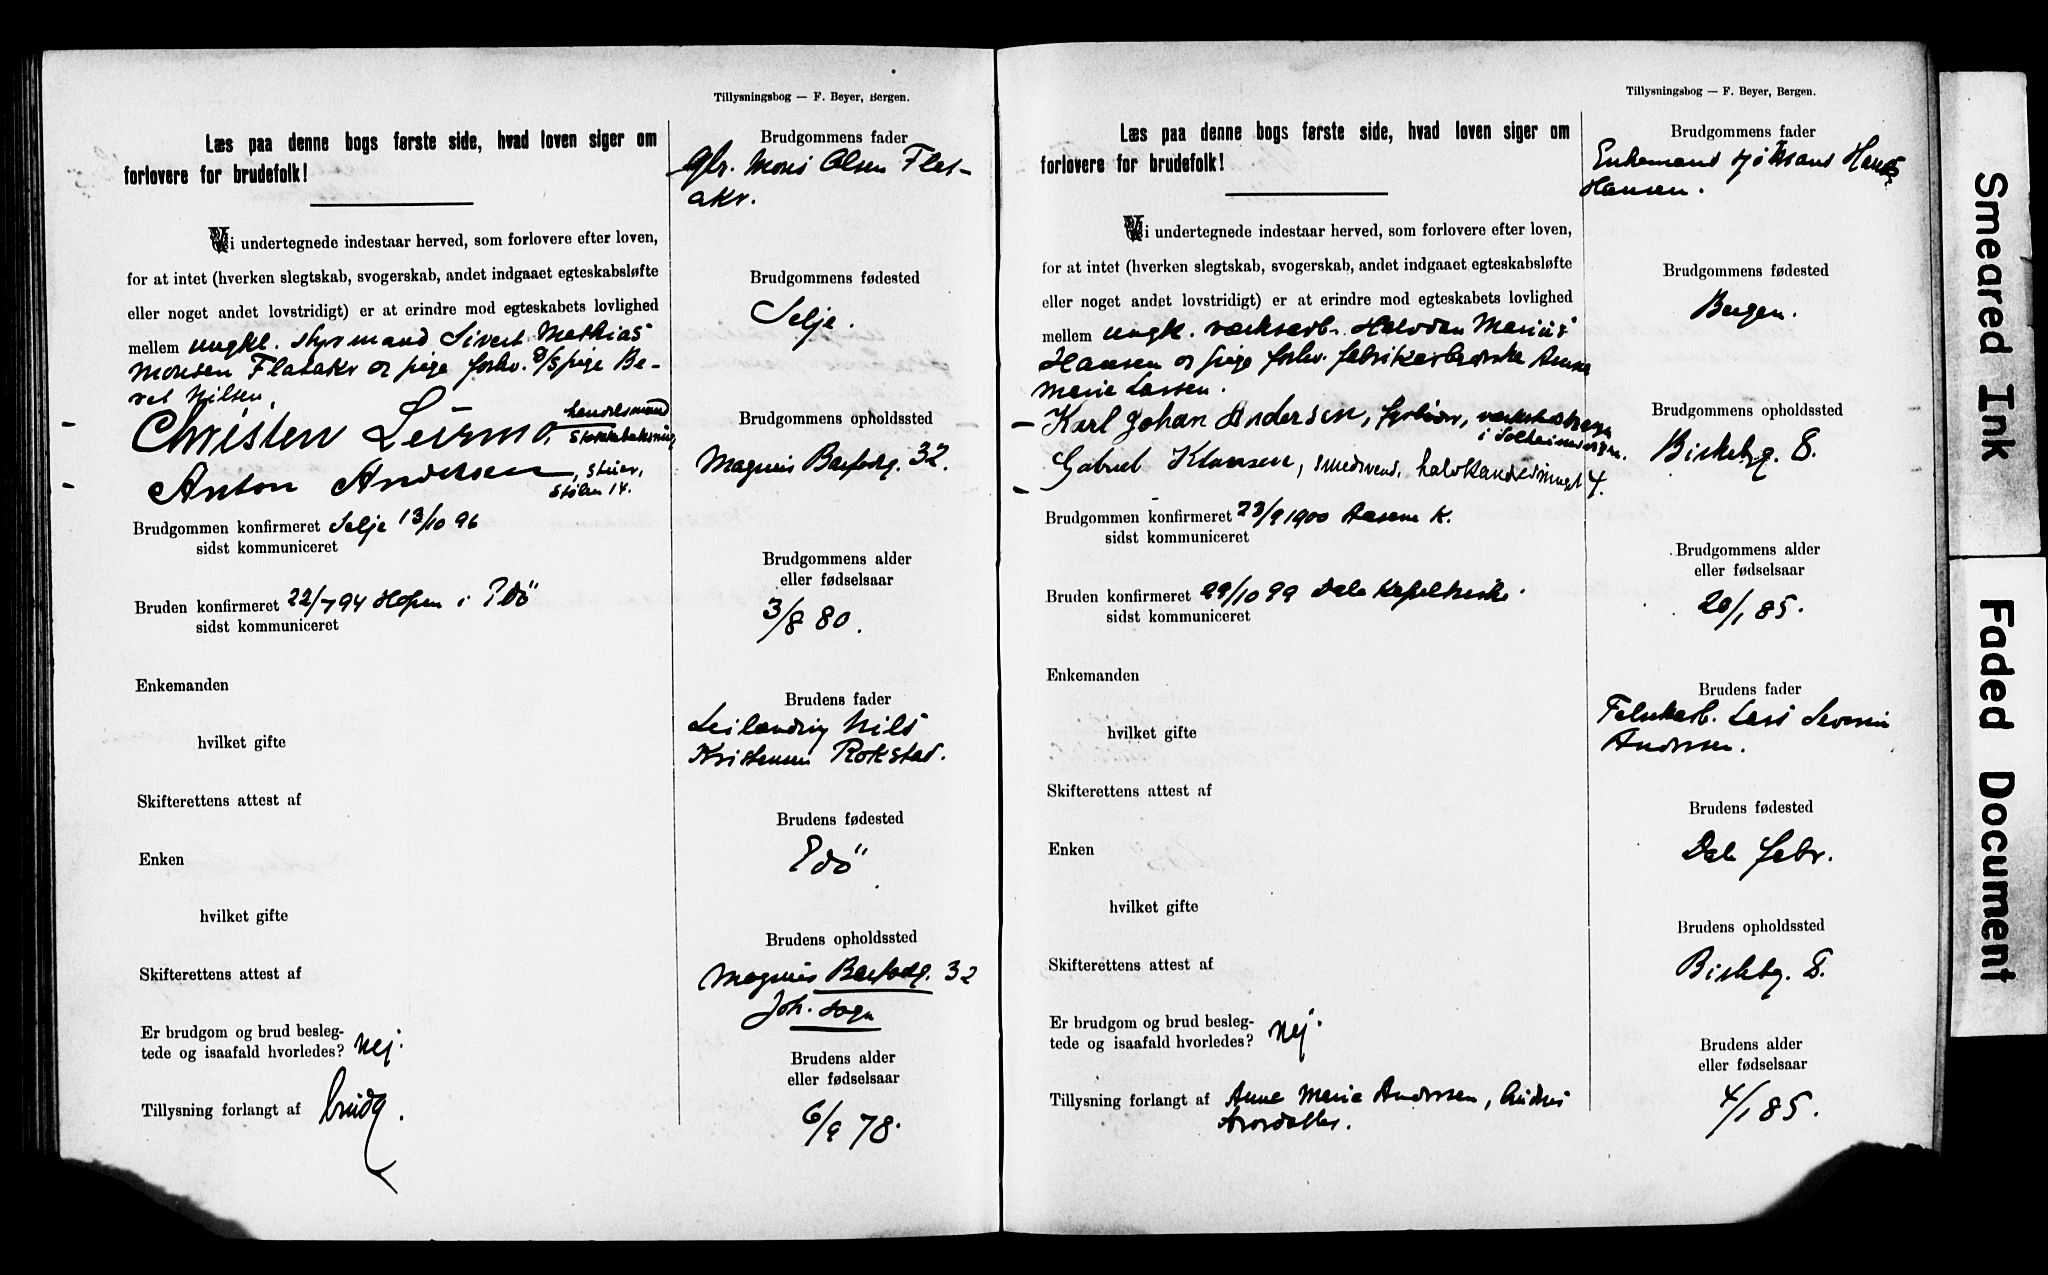 Tillysningsbog — F. Beyer, Bergen.
Læs paa denne bogs første side, hvad loven siger om
forlovere for brudefolk!
Vi undertegnede indestaar herved, som forlovere efter loven,
for at intet (hverken slegtskab, svogerskab, andet indgaaet egteskabsløfte
eller noget andet lovstridigt) er at erindre mod egteskabets lovlighed
mellem ungkl. styrmand Sivert Mathias
Monsen Flatakr og pige forhv. pige Be-
ret Nilsen.
Christen Leirmo, handelsmand
Anton Andersen, stuer,
Stølen 14.
Brudgommen konfirmeret Selje 13/10 96
sidst kommuniceret
Bruden konfirmeret 22/7 94 Hopen i Edö
sidst kommuniceret
Enkemanden
hvilket gifte
Skifterettens attest af
Enken
hvilket gifte
Skifterettens attest af
Er brudgom og brud besleg-
tede og isaafald hvorledes? Nej.
Tillysning forlangt af brudg.
Brudgommens fader
Gbr. Mons Olsen Flat-
akr.
Brudgommens fødested
Selje.
Brudgommens opholdssted
Magnus Barfodg. 32.
Brudgommens alder
eller fødselsaar
3/8 80.
Brudens fader
Leilending Nils
Kristensen Rokstad.
Brudens fødested
Edö
Brudens opholdssted
Magnus Barfodg. 32
Joh. sogn
Brudens alder
eller fødselsaar
6/9 78.
Tillysningsbog — F. Beyer, Bergen.
Læs paa denne bogs første side, hvad loven siger om
forlovere for brudefolk!
Vi undertegnede indestaar herved, som forlovere efter loven,
for at intet (hverken slegtskab, svogerskab, andet indgaaet egteskabsløfte
eller noget andet lovstridigt) er at erindre mod egteskabets lovlighed
mellem ungk. verksarb. Halvdan Marius
Hansen og pige forhv. fabrikarbeiderske Anna
Marie Larsen.
Karl Johan Andersen, fyrbøder,
i Solheimsvigen.
Gabriel Klausen, smedsvend, halvkandesmuget 4.
Brudgommen konfirmeret 23/9 1900 Aasene K.
sidst kommuniceret
Bruden konfirmeret 29/10 99 Dale Kapelkirke.
sidst kommuniceret
Enkemanden
hvilket gifte
Skifterettens attest af
Enken
hvilket gifte
Skifterettens attest af
Er brudgom og brud besleg-
tede og isaafald hvorledes? Nej.
Tillysning forlangt af Anne Marie Andersen,
Brudgommens fader
Enkemand Hans
Hansen.
Brudgommens fødested
Bergen.
Brudgommens opholdssted
Birkebg. 8.
Brudgommens alder
eller fødselsaar
20/1 85.
Brudens fader
Fabrikarb. Lars Severin
Andersen.
Brudens fødested
Dale febr.
Brudens opholdssted
Birkebg. 8.
Brudens alder
eller fødselsaar
4/1 85.
Smeared Ink
Faded Document